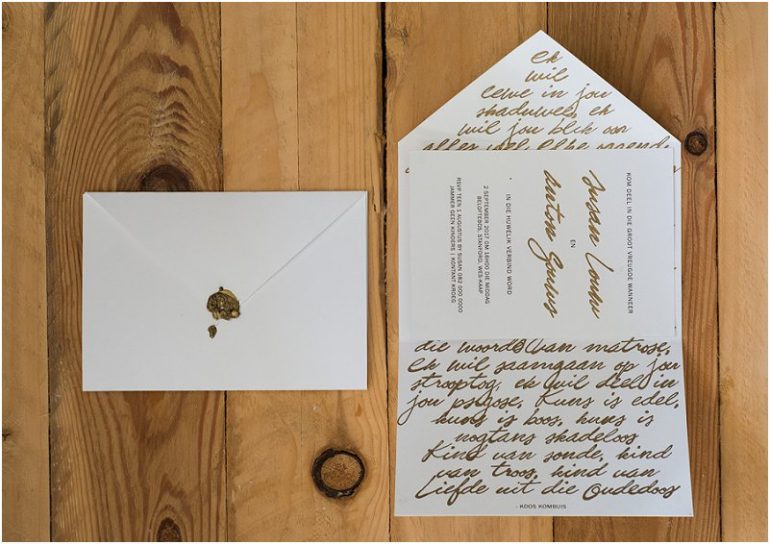 Ek
wil
lewe in jou
skaduwee, ek
wil jou blik van
alles
KOM DEEL IN DIE GROOT VREUGDE WANNEER
Susan Louw
EN
Anton
IN DIE HUWELIK VERBIND WORD
2 SEPTEMBER 2017 OM 16H00 DIE MIDDAG
BELOFTEBOS, STANFORD, WES-KAAP
RSVP TEEN 1 AUGUSTUS BY SUSAN 082 000 0000
JAMMER GEEN KINDERS | KONTANT KROEG
die woorde van matrose,
ek wil saamgaan op jou
strooptog, ek wil deel in
jou psigose. Kuns is edel,
kuns is boos, kuns is
nogtans skadeloos
Kind van sonde, kind
van troos, kind van
Liefde uit die Oudedoos
- KOOS KOMBUIS